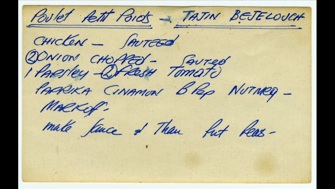 Poulet Petit Poids - TAJIN BEJELOUCH
CHICKEN - SAUTEED
② ONION CHOPPED - SAUTEED
1 PARSLEY - ② FRESH TOMATO
PAPRIKA CINAMON B Pep NUTMEG -
make sauce & Than Put Peas -